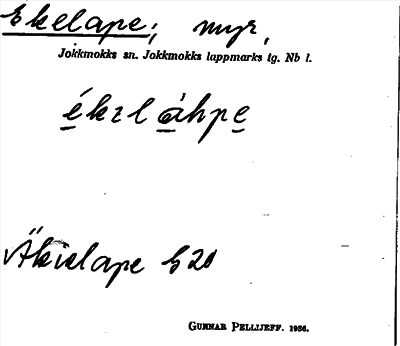 Ekelape; myr,
Jokkmokks sn. Jokkmokks lappmarks tg. Nb l.
ékɛlàhpe
Äkielape G20
GUNNAR PELLIJEFF. 1956.